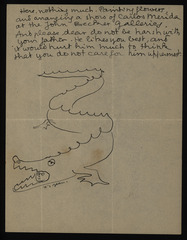 Here, nothing much. Painting flowers
and arranging a show of Carlos Merida
at the John Becker Galleries.
And please dear do not be harsh with
your father. He likes you best, and
it would hurt him much to think
that you do not care for him uppermost.